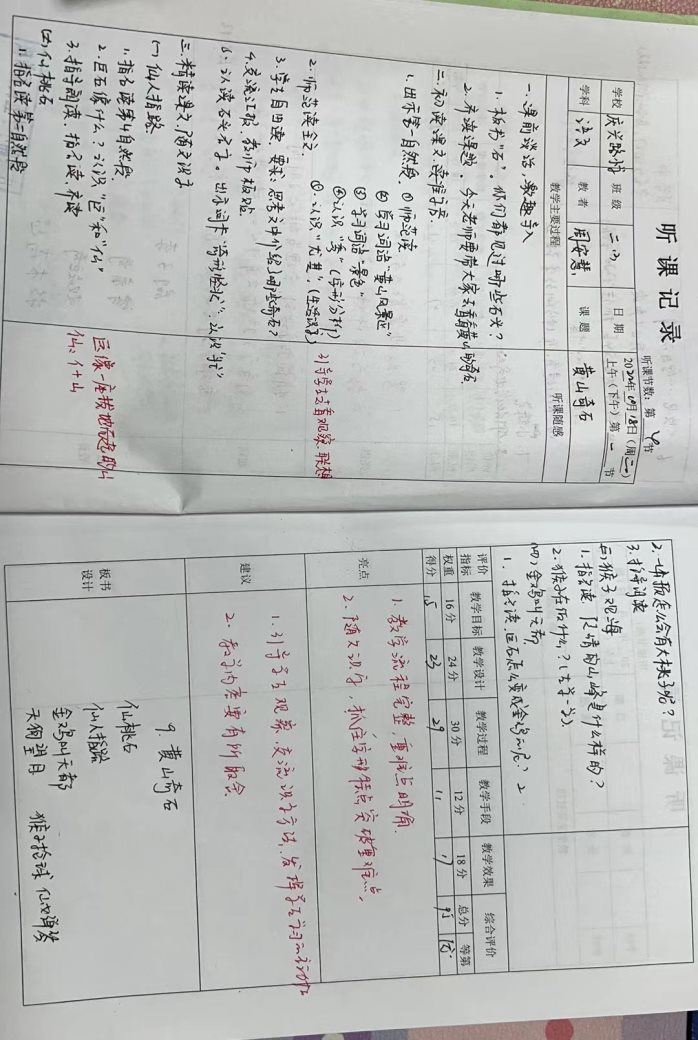 听课记录
听课节数：第 4 节
学校 庆兴路小 班级 二.3 日期 2022年10月18日（周二）
上午（下午）第一节
学科 语文 教者 周安慧 课题 黄山奇石
教学主要过程 听课随感
一、课前谈话，激趣导入
1. 板书"石"。你们都见过哪些石头？
2. 齐读课题。今天老师要带大家去看看黄山的奇石
二、初读课文，读准字音。
1. 出示第一自然段。①师范读
②学习词语"黄山风景区"
③学习词语"景色"
④认识"秀"（字形分析）
⑤认识"尤其"（生活识字）
引导学生去看观察、联想
2. 师范读全文
3. 学生自由读，要求：思考文中介绍了哪些奇石？
4. 交流汇报，教师板贴
5. 认读石头名字。出示词卡"奇形怪状"，认识"状"
三、精读课文，随文识字
(一) 仙人指路
1. 指名读第4自然段
2. 巨石像什么？认识"巨"和"仙"
巨像一座拔地而起的山
仙：亻+山
3. 指导朗读，指名读，齐读
(二) 仙桃石
1. 指名读第二自然段
2. 山顶怎么会有大桃子呢？
3. 指导朗读
(三) 猴子观海
1. 指名读，陡峭的山峰是什么样的？
2. 猴子在干什么？
(四) 金鸡叫天都
1. 指名读，巨石怎么变成金鸡的呢？
评价指标 教学目标 教学设计 教学过程 教学手段 教学效果 综合评价
权重 16分 24分 30分 12分 18分 总分 等第
得分 15 23 29 11 17 95 优
亮点
1. 教学流程完整，重难点明确。
2. 随文识字，抓住字形特点突破重难点。
建议
1. 引导学生观察，交流识字方法，发挥学生学习的主动性
2. 教学内容要有所取舍
板书设计
9. 黄山奇石
仙桃石
仙人指路
金鸡叫天都
天狗望月 猴子捻球 仙女弹琴